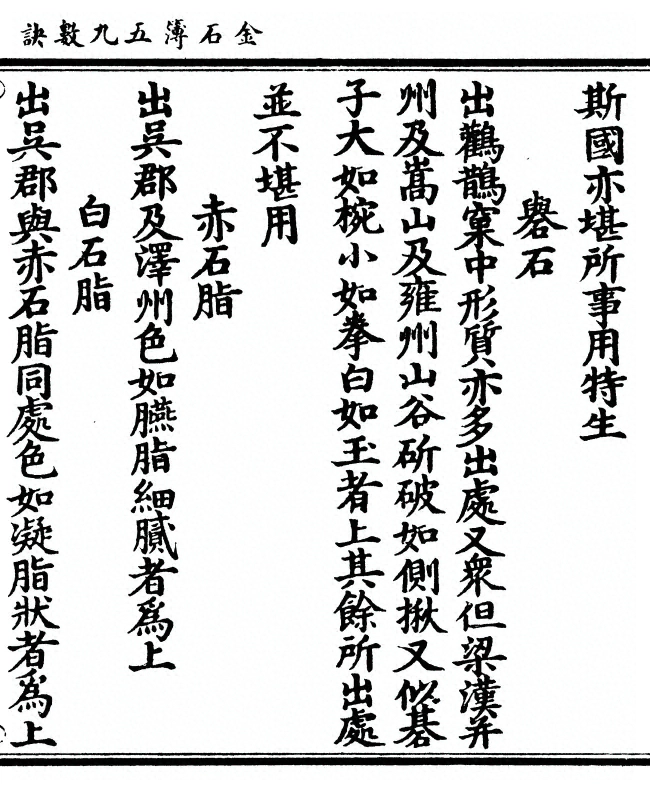 金石簿五九數訣
斯國亦堪所事用特生
礜石
出鸛鵲窠中形質亦多出處又衆但梁漢并
州及嵩山及雍州山谷斫破如側揪又似碁
子大如椀小如拳白如玉者上其餘所出處
並不堪用
赤石脂
出吳郡及澤州色如臙脂細膩者爲上
白石脂
出吳郡與赤石脂同處色如凝脂狀者爲上